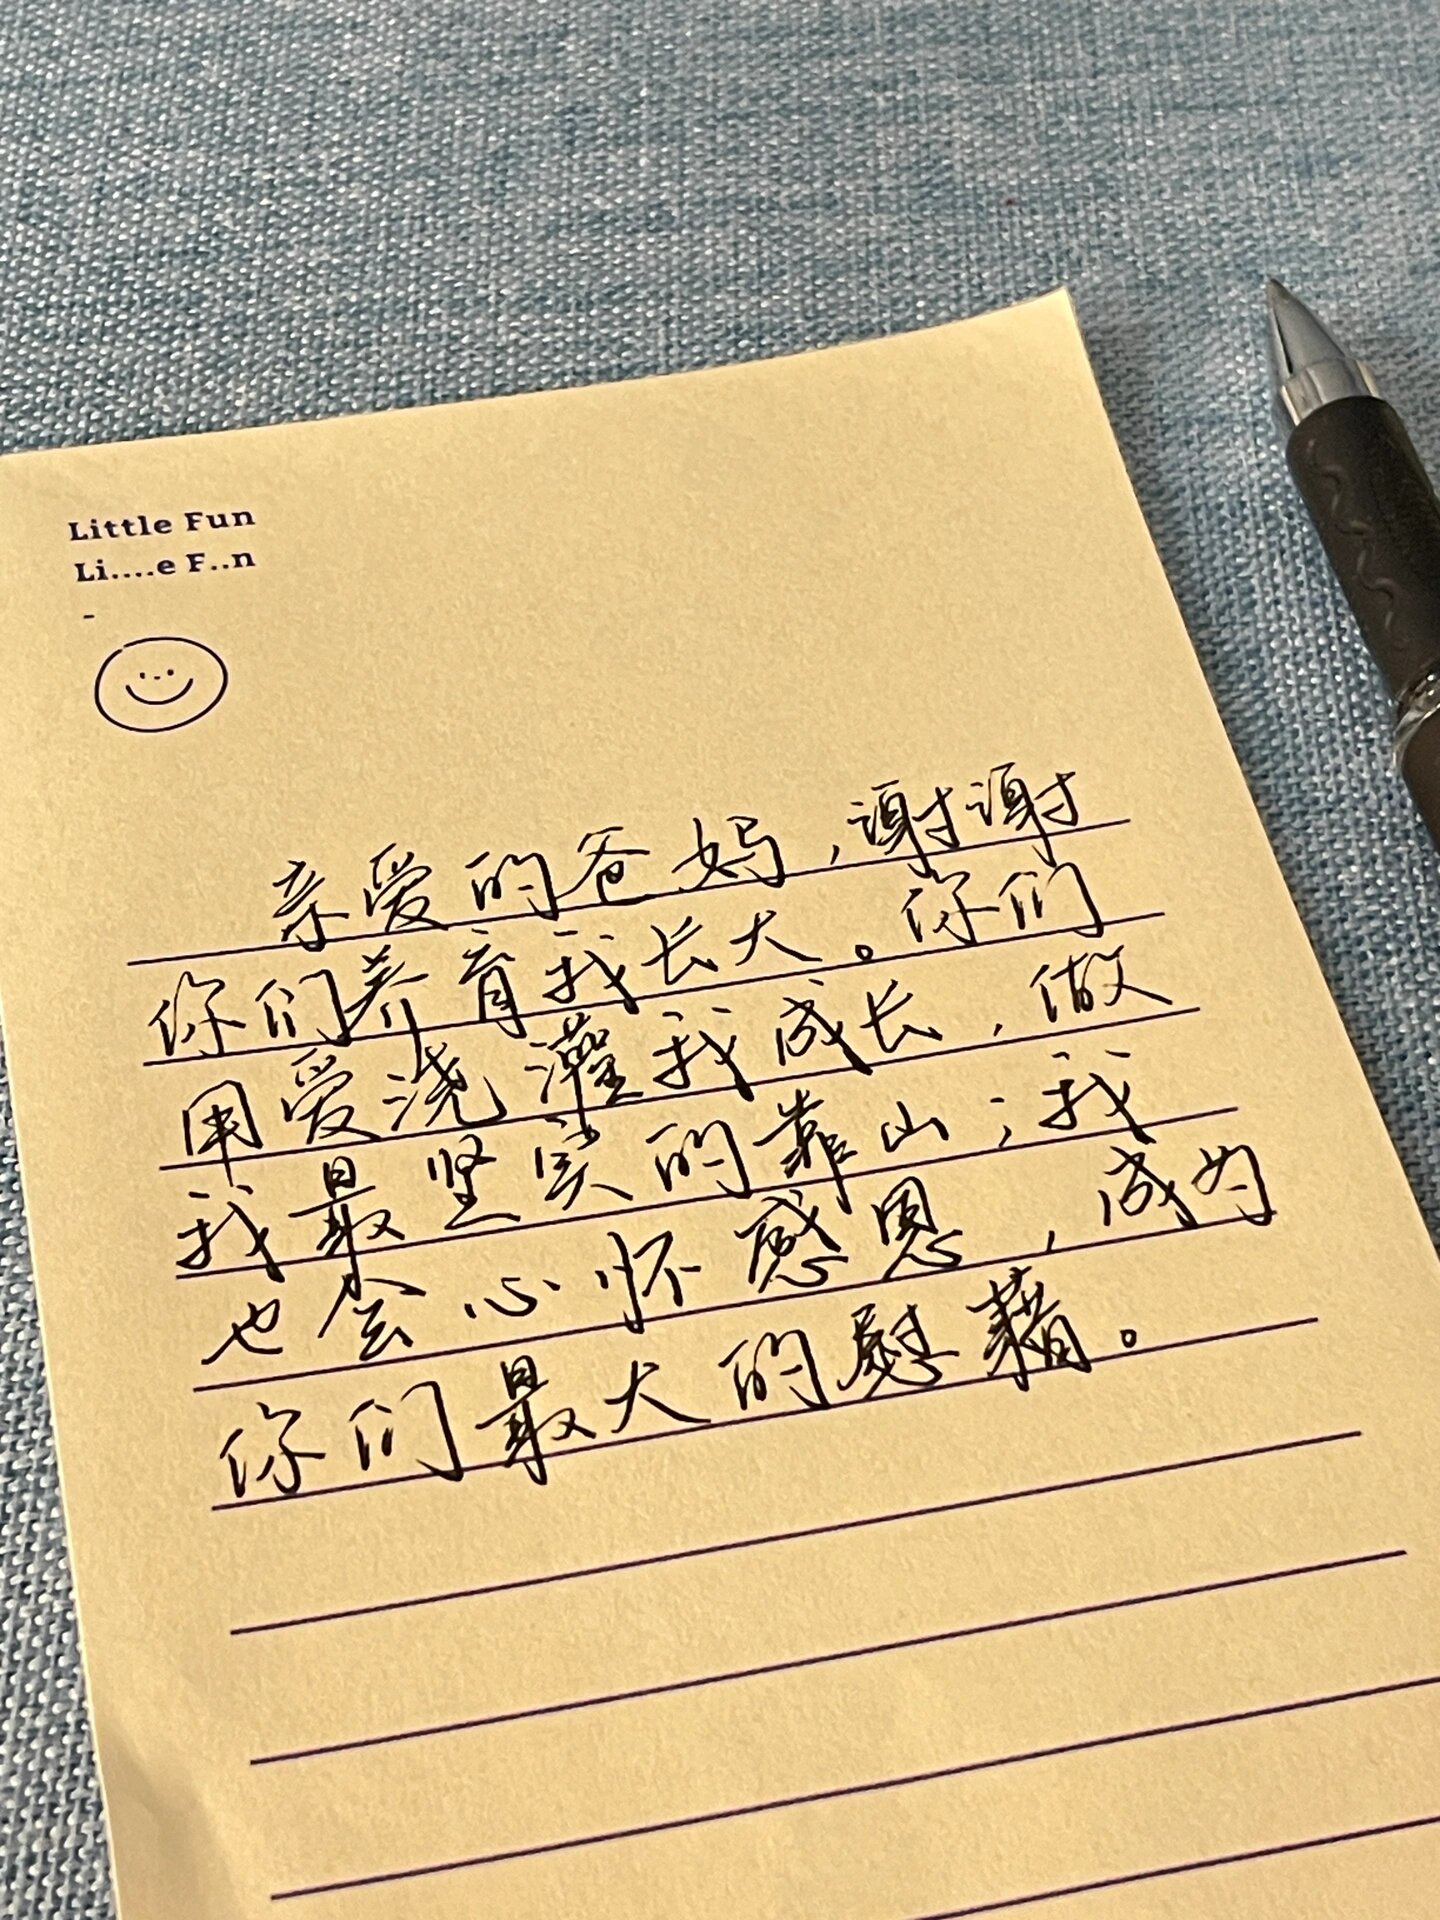 Little Fun
Li....e F..n
-
亲爱的爸妈，谢谢
你们养育我长大。你们
用爱浇灌我成长，做
我最坚实的靠山；我
也会心怀感恩，成为
你们最大的慰藉。